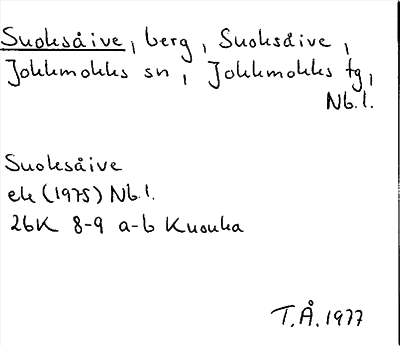 Suoksåive, berg, Suoksåive,
Jokkmokks sn, Jokkmokks tg,
Nb.l.
Suoksåive
ek (1975) Nb.l.
26K 8-9 a-b Kuouka
T.Å. 1977